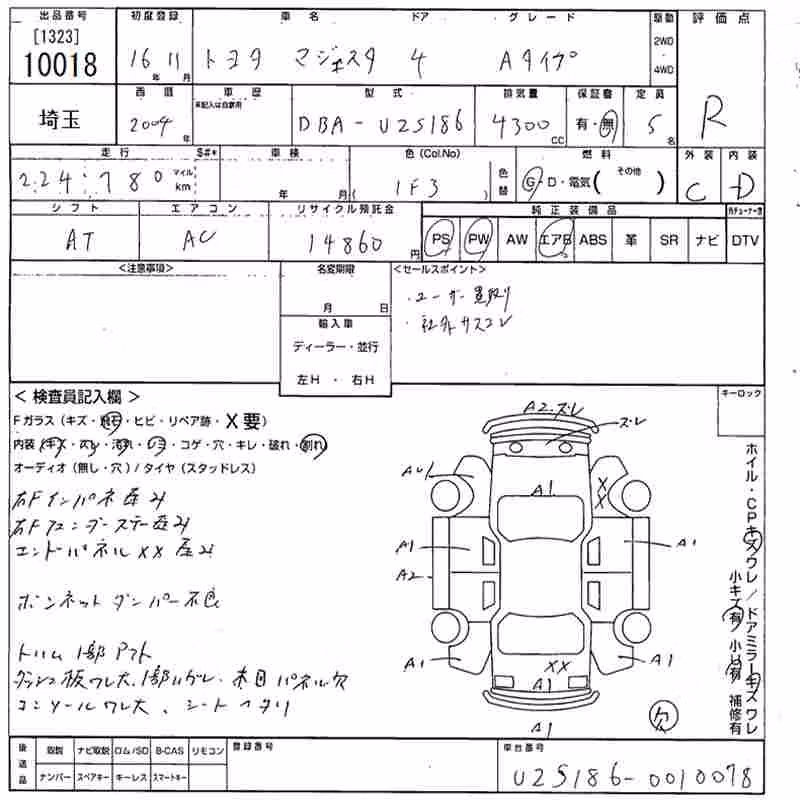 出品番号 初度登録 車名 ドア グレード 駆動 評価点
[1323]
10018 16年 11月 トヨタ マジェスタ 4 Aタイプ 2WD 4WD
西暦 車歴 型式 排気量 保証書 定員
埼玉 2004年 未記入は自家用 DBA-UZS186 4300CC 有・無 5名 R
走行 $#* 車検 色(Col.No) 色替 燃料 外装 内装
224,780 マイル km 年 月 ( 1F3 ) G・D・電気( その他 ) C D
シフト エアコン リサイクル預託金 純正装備品
AT AC 14860円 PS PW AW エアB ABS 革 SR ナビ DTV
<注意事項> 名変期限 <セールスポイント>
月 日 ・ユーザー買取り
輸入車 ・社外ガスコン
ディーラー・並行
左H ・ 右H
<検査員記入欄> キーロック
Fガラス(キズ・飛石・ヒビ・リペア跡・X要)
内装(キズ・スレ・汚れ・シミ・コゲ・穴・キレ・破れ・割れ)
オーディオ(無し・穴)/タイヤ(スタッドレス)
右Fインパネ歪み
右Fフェンダーステー歪み
エンドパネルXX歪み
ボンネットダンパー不良
トリム1部アスト
ダッシュ板ワレ大、1部ハガレ、木目パネル欠
コンソールワレ大、シートヘタリ
A2.ズレ
ズレ
AU1
A1
X
X
A1
A1
A2
A1
XX
A1
A1
A1
欠
ホイル・CPキズワレ/ドアミラーキズワレ
小キズ有 小U有 補修有
後送品 取説 ナビ取説 ロム/SD B-CAS リモコン 登録番号 車台番号
ナンバー スペアキー キーレス スマートキー UZS186-0010078